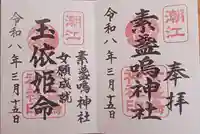 奉拝
潮江
素盞嗚神社
令和八年三月十五日
潮江
素盞嗚神社
女願成就
玉依姫命
令和八年三月十五日